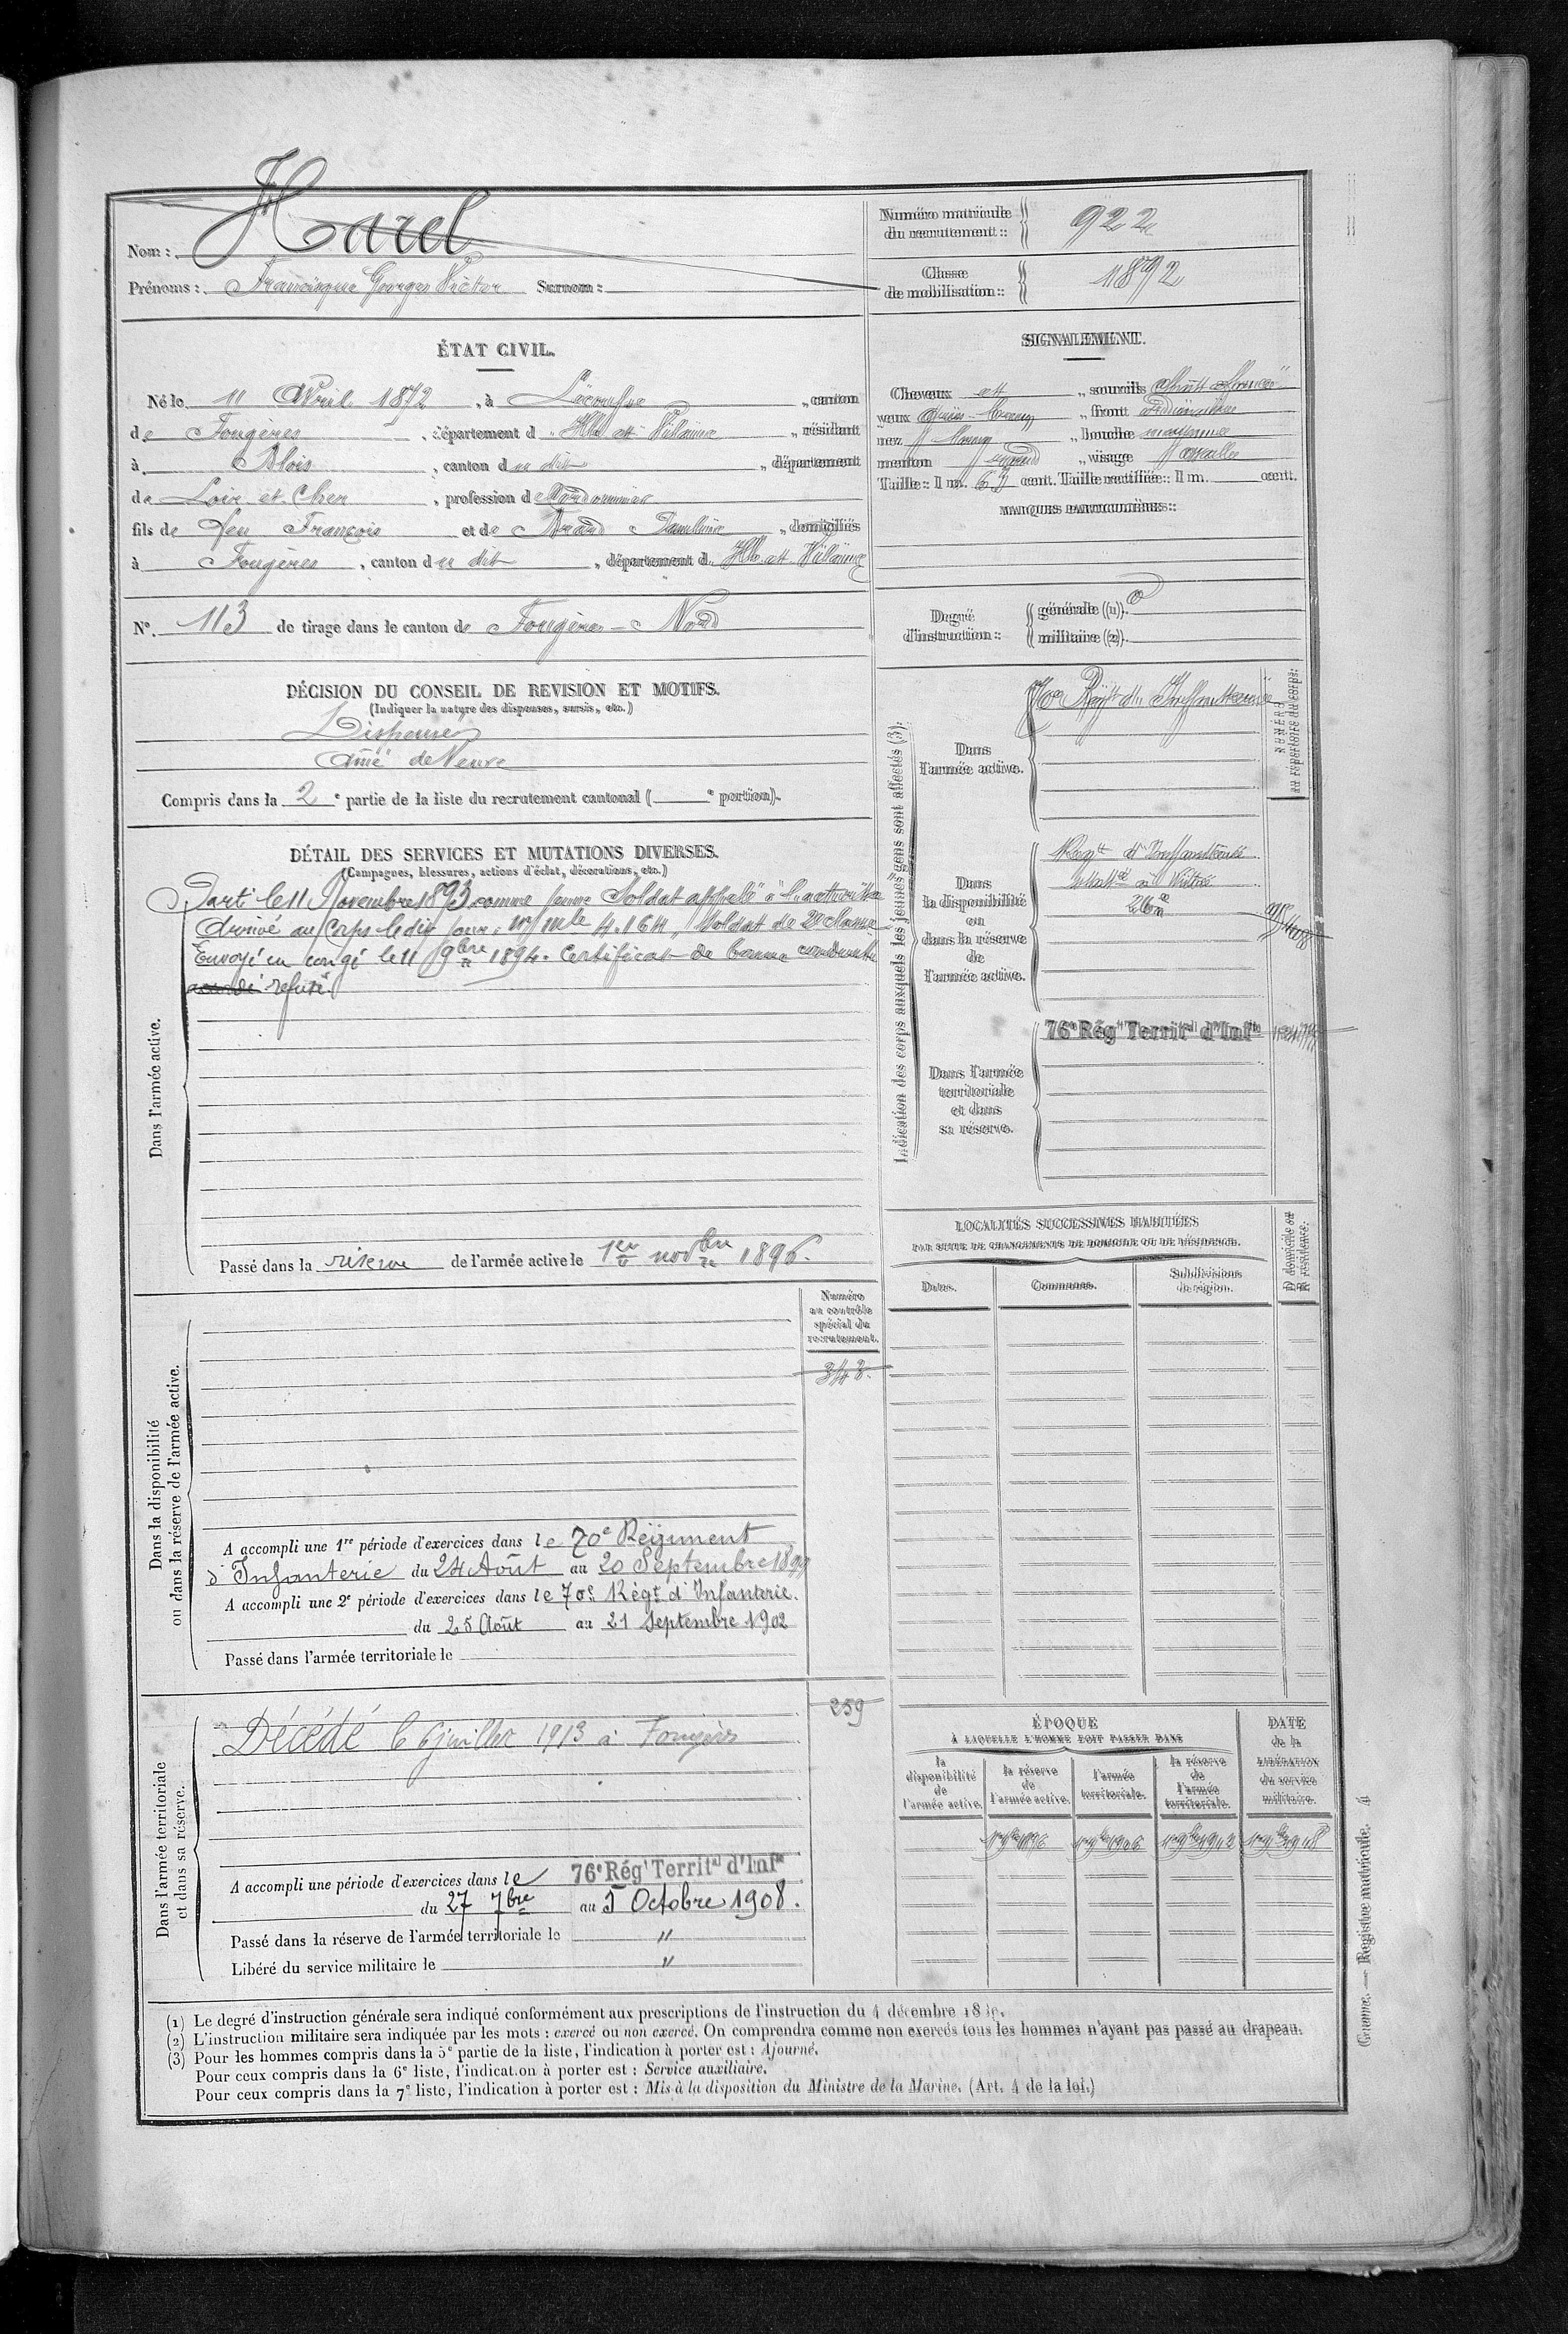 Nom : Harel
Prénoms : Francisque Georges Victor Surnom :
Numéro matricule du recrutement : 922
Classe de mobilisation : 1892
ÉTAT CIVIL.
Né le 11 Avril 1872, à Lécousse, canton
de Fougères, département d'Ille et Vilaine, résidant
à Blois, canton du dit, département
de Loir et Cher, profession de Cordonnier
fils de feu François et de domiciliés
à Fougères, canton du dit, département d'Ille et Vilaine
N° 113 de tirage dans le canton de Fougères - Nord
SIGNALEMENT.
Cheveux et sourcils
yeux front
nez bouche moyenne
menton rond, visage ovale
Taille : 1 m. 67 cent. Taille rectifiée : 1 m. cent.
MARQUES PARTICULIÈRES :
Degré d'instruction : générale (1).
militaire (2).
DÉCISION DU CONSEIL DE REVISION ET MOTIFS.
(Indiquer la nature des dispenses, sursis, etc.)
Dispensé
Aîné de Veuve
Compris dans la 2e partie de la liste du recrutement cantonal ( e portion).
DÉTAIL DES SERVICES ET MUTATIONS DIVERSES.
(Campagnes, blessures, actions d'éclat, décorations, etc.)
Dans l'armée active.
Parti le 11 Novembre 1893 comme jeune Soldat appelé à l'activité
Arrivé au Corps le dit jour, No mle 4.164, Soldat de 2e Classe
Envoyé en congé le 11 9bre 1894. Certificat de bonne conduite
accordé refusé.
Passé dans la réserve de l'armée active le 1er novbre 1896.
Indication des corps auxquels les jeunes gens sont affectés (3).
NUMÉRO au répertoire du corps.
Dans l'armée active.
70e Régt d'Infanterie
Dans la disponibilité ou dans la réserve de l'armée active.
Régt d'Infanterie
à Vitré
Dans l'armée territoriale et dans sa réserve.
76e Régt Territal d'Infie
LOCALITÉS SUCCESSIVES HABITÉES
PAR SUITE DE CHANGEMENTS DE DOMICILE OU DE RÉSIDENCE.
Dates.
Communes.
Subdivisions de région.
D domicile ou R résidence.
Dans la disponibilité
ou dans la réserve de l'armée active.
Numéro au contrôle spécial du recrutement.
343.
A accompli une 1re période d'exercices dans le 70e Régiment
d'Infanterie du 24 Août au 20 Septembre 1899
A accompli une 2e période d'exercices dans le 70e Régt d'Infanterie.
du 25 Août au 21 Septembre 1902
Passé dans l'armée territoriale le
Dans l'armée territoriale
et dans sa réserve.
259
Décédé le 6 juillet 1913 à Fougères
A accompli une période d'exercices dans le 76e Régt Territal d'Infie
du 27 7bre au 5 Octobre 1908.
Passé dans la réserve de l'armée territoriale le "
Libéré du service militaire le "
ÉPOQUE
À LAQUELLE L'HOMME DOIT PASSER DANS
la disponibilité de l'armée active.
la réserve de l'armée active.
l'armée territoriale.
la réserve de l'armée territoriale.
DATE de la LIBÉRATION du service militaire.
1er 9bre 1896
1er 9bre 1906
1er 9bre 1912
1er 9bre 1918
(1) Le degré d'instruction générale sera indiqué conformément aux prescriptions de l'instruction du 4 décembre
(2) L'instruction militaire sera indiquée par les mots : exercé ou non exercé. On comprendra comme non exercés tous les hommes n'ayant pas passé au drapeau.
(3) Pour les hommes compris dans la 5e partie de la liste, l'indication à porter est : Ajourné.
Pour ceux compris dans la 6e liste, l'indication à porter est : Service auxiliaire.
Pour ceux compris dans la 7e liste, l'indication à porter est : Mis à la disposition du Ministre de la Marine. (Art. 4 de la loi.)
Guerre. — Registre matricule. 4